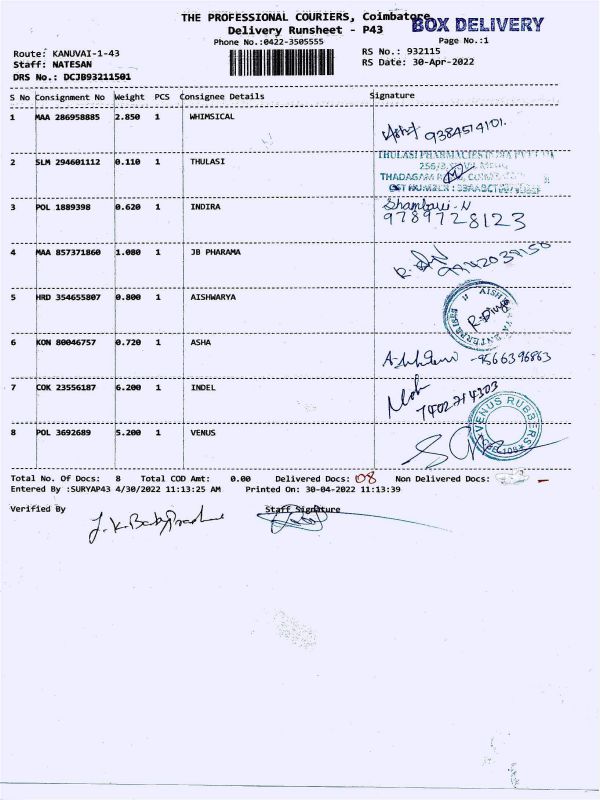 THE PROFESSIONAL COURIERS, Coimbatore
BOX DELIVERY
Delivery Runsheet - P43
Phone No.:0422-3505555
Page No.:1
Route: KANUVAI-1-43
RS No.: 932115
Staff: NATESAN
RS Date: 30-Apr-2022
DRS No.: DCJB93211501
S No Consignment No Weight PCS Consignee Details Signature
1 MAA 286958885 2.850 1 WHIMSICAL
9384514101.
2 SLM 294601112 0.110 1 THULASI
THULASI PHARMACIES
THADAGAM
GST NUMBER :
3 POL 1889398 0.620 1 INDIRA
Shambavi-N
9789728123
4 MAA 857371860 1.080 1 JB PHARAMA
5 HRD 354655807 0.800 1 AISHWARYA
R-Divya
ENTERPRISES
6 KON 80046757 0.720 1 ASHA
-9566396863
7 COK 23556187 6.200 1 INDEL
7402714303
8 POL 3692689 5.200 1 VENUS
VENUS RUBBERS
Total No. Of Docs: 8 Total COD Amt: 0.00 Delivered Docs: 08 Non Delivered Docs: -
Entered By :SURYAP43 4/30/2022 11:13:25 AM Printed On: 30-04-2022 11:13:39
Verified By Staff Signature